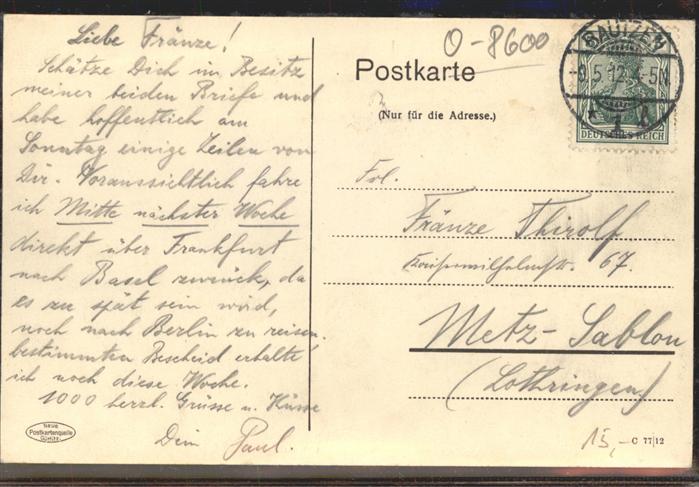 Liebe Fränze!
Schätze Dich im Besitz
meiner beiden Briefe und
habe hoffentlich am
Sonntag einige Zeilen von
Dir. Voraussichtlich fahre
ich Mitte nächster Woche
direkt über Frankfurt
nach Basel zurück, da
es zu spät sein wird,
noch nach Berlin zu reisen.
bestimmten Bescheid erhalte
ich noch diese Woche.
1000 herzl. Grüsse u. Küsse
Dein Paul.
NEUE
Postkartenquelle
O-8600
Postkarte
(Nur für die Adresse.)
BAUTZEN
5 12 4-5N
1
DEUTSCHES REICH
Frl.
Fränze Thirolf
Kaiserwilhelmstr. 67.
Metz-Sablon
(Lothringen)
15,-
C 77/12